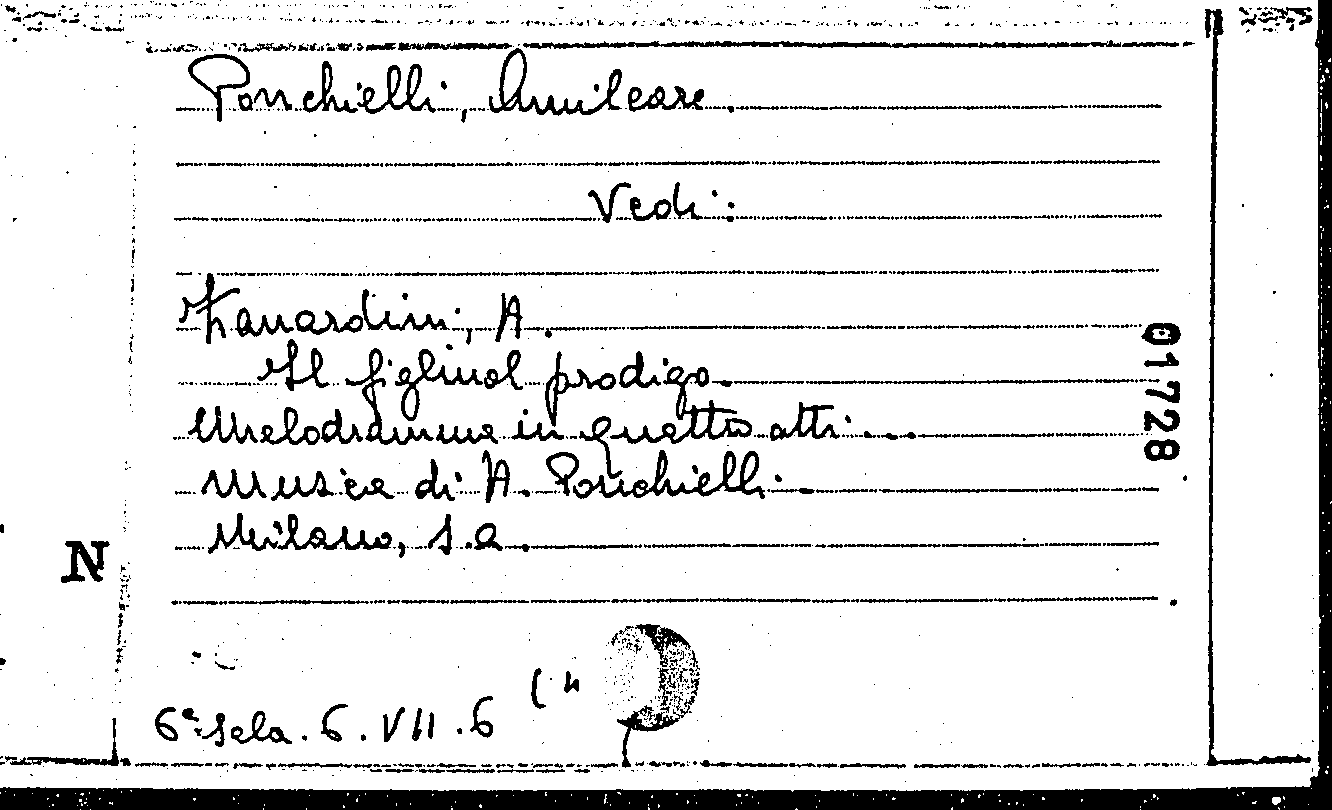 Ponchielli, Amilcare.
Vedi:
Zanardini, A.
Il figliuol prodigo.
Melodramma in quattro atti...
Musica di A. Ponchielli.
Milano, s.a.
01728
N
6ª sala. 6. VII. 6